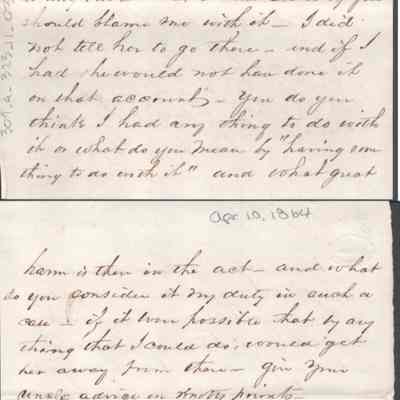 should blame me with it - I did
not tell her to go there - and if I
had she would not have done it
on that account - You do you
think I had any thing to do with
it or what do you mean by "having some
thing to do with it" and what great
Apr 10, 1864
harm is there in the act - and what
do you consider it my duty in such a
case - if it were possible that by any
thing that I could do, would get
her away from there - give your
uncle advice on knotty points -